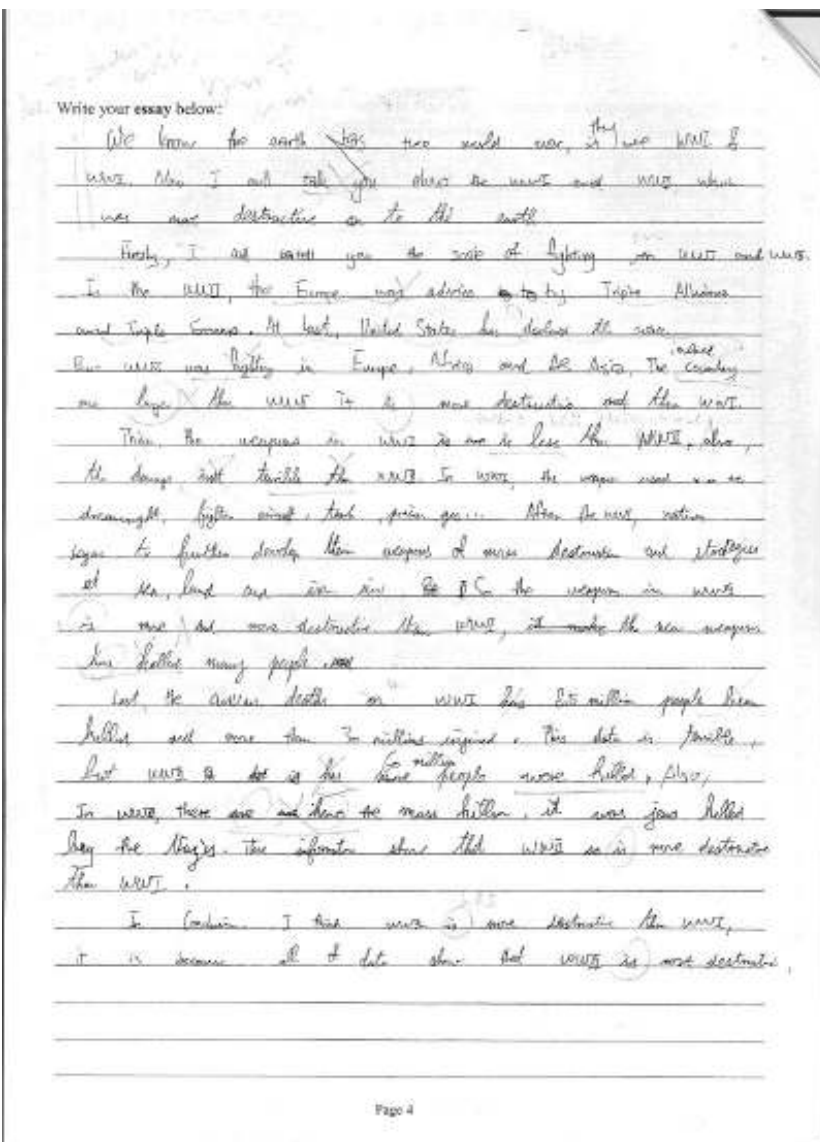 Write your essay below:
We know the earth has two world war, they are WWI &
WWII. Now I will talk you about the WWI and WWII, which
was more destructive to the earth
Firstly, I will you the scale of fighting on WWI and WWII.
In the WWII, the Europe was to by Triple Alliance
and Triple . At last, United States has declare the war.
But WWII was fighting in Europe, Africa and Asia, The country
are larger than WWI It is more destructive and than WWI.
Then, the weapons in WWI is less than WWII, also,
the damage isn't terrible than WWII. In WWI, the weapon used
dreadnought, fighter , tank, gas... After the war, nations
began to further develop their weapons of mass destruction and strategies
at sea, land and in air, So the weapon in WWII
is more and more destructive than WWI, it make the new weapons
have killed many people.
Last, the deaths on WWI has 8.5 million people been
killed and more than 20 millions injured. This data is terrible,
but WWII is has 60 million people were killed, Also,
In WWII, there are have the mass , it was jews killed
by the . The information show that WWII is more destructive
than WWI.
In , I think WWII is more destructive than WWI,
it is because all of data show that WWII is most destructive.
Page 4